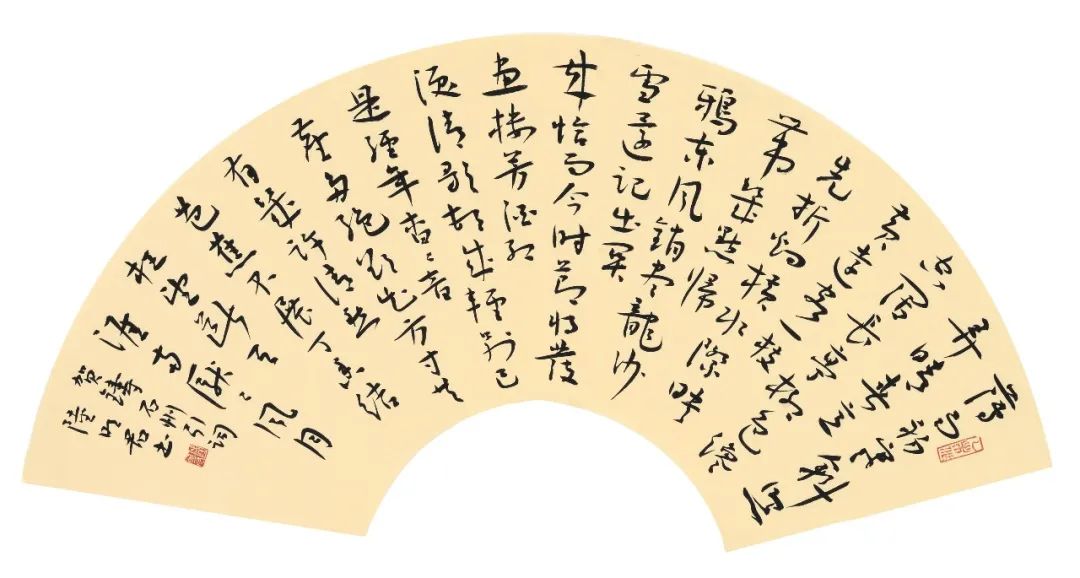 薄雨初寒斜照
弄晴春意
空闊長亭柳色才
黃遠客一枝
先折烟橫水際映
帶幾點歸
鴉東風銷盡龍沙
雪還記出關
来恰而今時節將發
畫樓芳酒紅
淚清歌頓成輕別已
是經年杳杳音
塵多絕欲知方寸共
有幾許清愁
芭蕉不展丁香結
枉望斷天
涯兩厭厭風月
賀鑄石州引詞
陸明君書